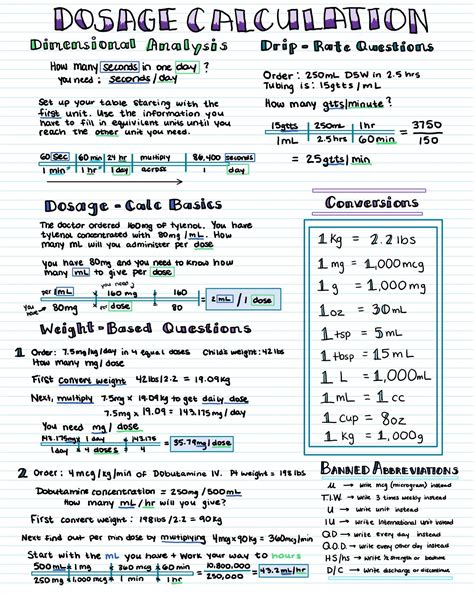 DOSAGE CALCULATION
Dimensional Analysis
How many seconds in one day?
you need: seconds/day
Set up your table starting with the
first unit. Use the information you
have to fill in equivilent units until you
reach the other unit you need.
60 sec | 60 min | 24 hr | multiply | 86,400 seconds
1 min | 1 hr | 1 day | across | 1 day
Drip-Rate Questions
Order: 250mL D5W in 2.5 hrs
Tubing is: 15gtts/mL
How many gtts/minute?
15gtts | 250mL | 1hr = 3750
1mL | 2.5 hrs | 60min 150
= 25gtts/min
Dosage-Calc Basics
The doctor ordered 160mg of tylenol. You have
tylenol concentrated with 80mg/mL. How
many ml will you administer per dose
you have 80mg and you need to know how
many mL to give per dose
you need
per mL × 160 mg = 160 = 2 mL / 1 dose
you have → 80mg per dose 80
Conversions
1 Kg = 2.2 lbs
1 mg = 1,000mcg
1 g = 1,000mg
1 oz = 30mL
1 tsp = 5mL
1 tbsp = 15mL
1 L = 1,000mL
1 mL = 1 cc
1 cup = 8oz
1 Kg = 1,000g
Weight-Based Questions
1 Order: 7.5mg/kg/day in 4 equal doses Child's weight: 42lbs
How many mg/dose
First convert weight 42lbs/2.2 = 19.09kg
Next, multiply 7.5mg × 19.09kg to get daily dose
7.5mg × 19.09 = 143.175mg/day
You need mg/dose
143.175mg | 1 day = 143.175 = 35.79mg/dose
1 day | 4 doses 4
2 Order: 4mcg/kg/min of Dobutamine IV. Pt weight = 198lbs
Dobutamine concentration = 250mg/500mL
How many mL/hr will you give?
First convert weight: 198lbs/2.2 = 90kg
Next find out per min dose by multiplying 4mcg × 90kg = 360mcg/min
Start with the mL you have + work your way to hours
500mL | 1mg | 360 mcg | 60 min = 10,800,000 = 43.2mL/hr
250mg | 1,000mcg | 1 min | 1hr 250,000
BANNED ABBREVIATIONS
→ write mcg (microgram) instead
T.I.W → write 3 times weekly instead
U → write unit instead
IU → write international unit instead
Q.D → write every day instead
Q.O.D. → write every other day instead
HS/hs → write ½ strength or bedtime
D/C → write discharge or discontinue